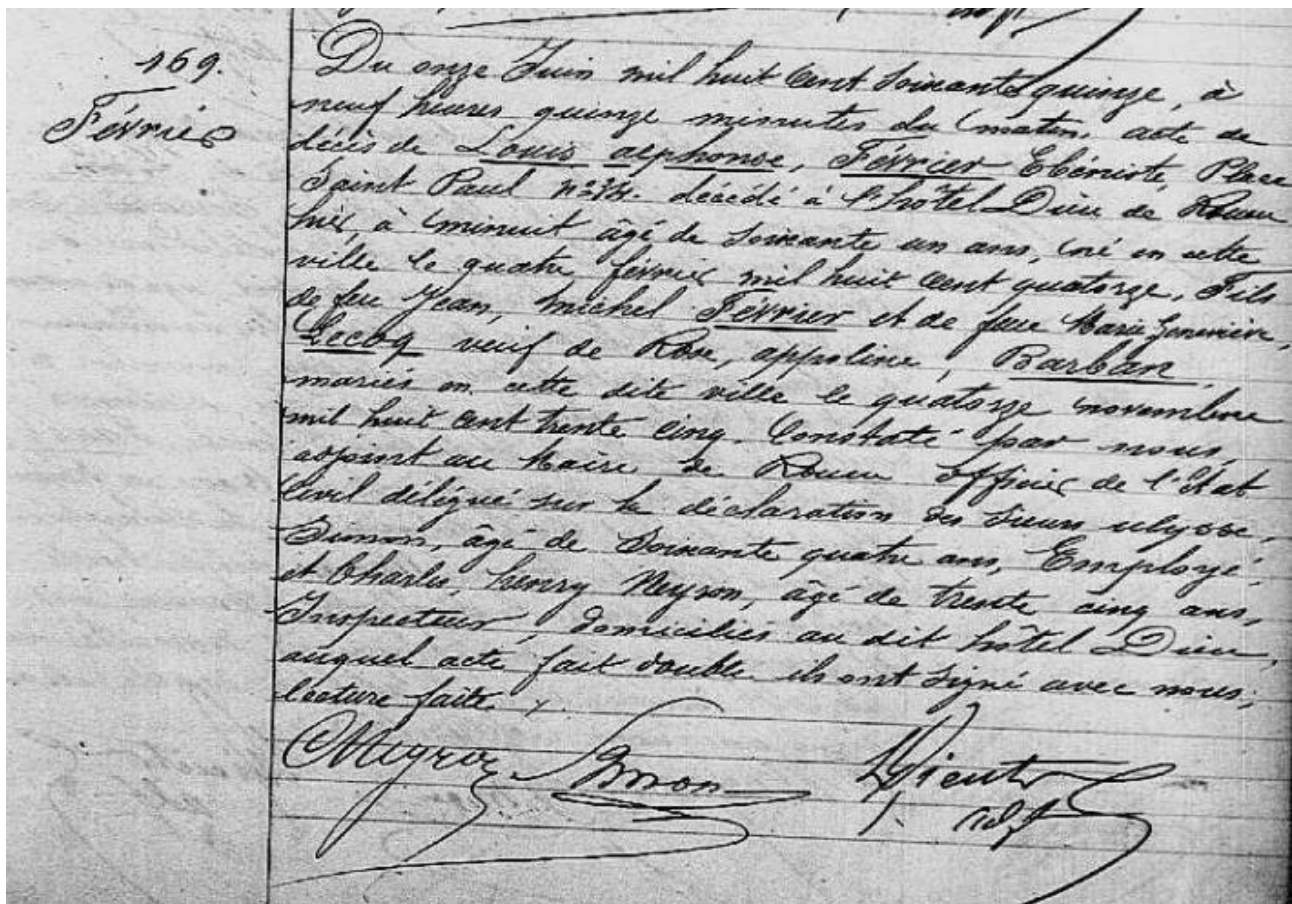 169.
Février
Du onze Juin mil huit cent soixante quinze, à
neuf heures quinze minutes du matin. acte de
décès de Louis alphonse, Février Ebéniste, Place
Saint Paul n° décédé à l'hôtel Dieu de Rouen
hier, à minuit âgé de soixante un ans, né en cette
ville le quatre février mil huit cent quatorze, Fils
de feu Jean, Michel Février et de feue Marie Geneviève,
Lecoq veuf de Rose, appoline, Barban
mariés en cette dite ville le quatorze novembre
mil huit cent trente cinq. Constaté par nous,
adjoint au Maire de Rouen officier de l'Etat
Civil délégué sur la déclaration des sieurs ulysse,
Simon, âgé de soixante quatre ans, Employé,
et Charles, henry Meyron, âgé de trente cinq ans,
Inspecteur, domiciliés au dit hôtel Dieu,
auquel acte fait double ils ont signé avec nous;
lecture faite.
Simon
adjt